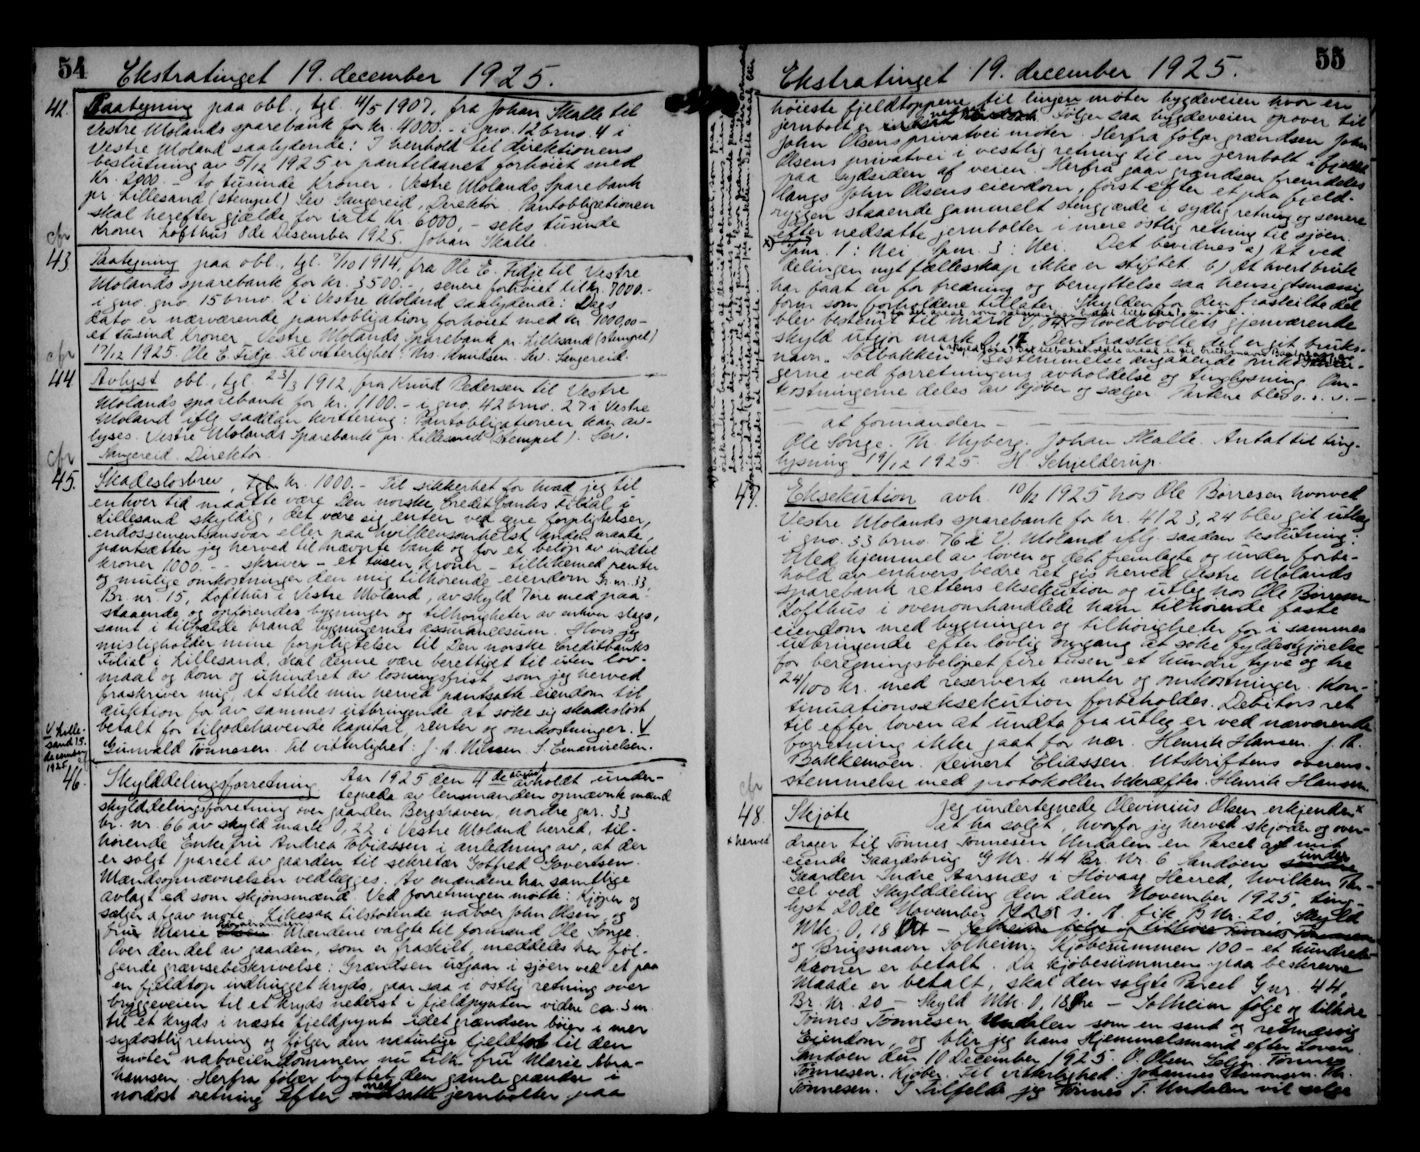 54
Ekstratinget 19. december 1925.
42. Paategning paa obl., tgl. 4/5 1907, fra Johan Skalle til
Vestre Molands sparebank for kr. 4000.- i gno. 12 brno. 4 i
Vestre Moland saalydende: I henhold til direktionens
beslutning av 5/12 1925 er pantelaanet forhöiet med
kr. 2000.- to tusinde Kroner. Vestre Molands Sparebank
pr. Lillesand (stempel) Sev. Saugereid, Direktör. Pantobligationen
skal herefter gjælde for ialt kr 6000,- seks tusinde
kroner Lofthus 8de Desember 1925. Johan Skalle.
cfr
43 Paategning paa obl., tgl. 7/10 1914, fra Ole E. Fidje til Vestre
Molands sparebank for kr. 3500.-, senere forhöiet til kr. 7000.-
i gno. 15 brno. 2 i Vestre Moland saalydende: Dags
dato er nærværende pantobligation forhöiet med kr 1000,00-
et tusind Kroner Vestre Molands sparebank pr. Lillesand (stempel)
17/12 1925. Ole E. Fidje. Til vitterlighet: Nrs. Knudsen Sev. Saugereid.
cfr
44 Avlyst obl., tgl. 23/3 1912, fra Knud Pedersen til Vestre
Molands sparebank for kr. 1100.- i gno. 42 brno. 27 i Vestre
Moland iflg. saadan kvittering: Pantobligationen kan av-
lyses. Vestre Molands Sparebank pr. Lillesand (stempel). Sev.
Saugereid Direktör.
cfr
45. Skadeslösbrev, tgl. kr. 1000.- Til sikkerhet for hvad jeg til
enhver tid maatte være Den norske Creditbanks Filial i
Lillesand skyldig, det være sig enten ved egne forpligtelser,
endossementsansvar eller paa hvilkensomhelst anden maate,
pantsætter jeg herved til nævnte bank og for et belöp av indtil
kroner 1000.- skriver - et tusen kroner - tillikemed renter
og mulige omkostninger den mig tilhörende eiendom Gr. nr. 33
Br. nr. 15, Lofthus i Vestre Moland, av skyld 7 öre med paa-
staaende og opförendes bygninger og tilhörigheter av enhver slags,
samt i tilfælde brand bygningernes assurancesum. Hvis jeg
misligholder mine forpligtelser til Den norske Creditbanks
Filial i Lillesand, skal denne være berettiget til uten lov-
maal og dom og uhindret av lösningsfrist som jeg herved
fraskriver mig, at stille min herved pantsatte eiendom til
auktion for av sammes utbringende at söke sig skadeslöst
betalt for tilgodehavende kapital, renter og omkostninger. V
V Lille-
sand 15.
december
1925
Gunvald Tönnesen. Til vitterlighet: J. A. Nilssen. S. Emanuelsen.
46. Skylddelingsforretning Aar 1925 den 4 december avholdt under-
tegnede av lensmanden opnævnte mænd
skylddelingsforretning over gaarden Bergshaven, nordre gnr. 33
br. nr. 66 av skyld mark 0,22 i Vestre Moland herred, til-
hörende Enkefru Andrea Tobiassen i anledning av, at der
er solgt 1 parcel av gaarden til sekretær Gotfred Evertsen.
Mandsopnævnelsen vedlægges. Av mændene har samtlige
avlagt ed som skjönsmænd. Ved forretningen mötte: Kjöper og
sælger av gav möte. Likesaa tilstötende naboer John Olsen, og
fru Marie Abrahamsen. Mændene valgte til formand Ole Songe.
Over den del av gaarden, som er fraskilt, meddeles her föl-
gende grænsebeskrivelse: Grændsen utgaar i sjöen ved et paa
en fjeldtop indhugget kryds, gaar saa i östlig retning over
bygdeveien til et kryds nederst i fjeldpynten videre ca. 3 m.
til et kryds i næste fjeldpynt idet grændsen böier i mer
sydostlig retning og fölger den naturlige fjeldfot til den
möter naboeiendommen nu tilh. fru Marie Abra-
hamsen. Herfra fölger byttet den gamle grændse i
nordost retning efter nedsatte jernbolter paa
55
Ekstratinget 19. december 1925.
höieste fjeldtoppene, til linjen möter bygdeveien hvor en
jernbolt er nedsat. Fölger saa bygdeveien opover til
John Olsens privatvei möter. Herfra fölger grændsen John
Olsens privatvei i vestlig retning til en jernbolt i fjeldet
paa sydsiden af veien. Herfra gaar grændsen fremdeles
langs John Olsens eiendom, först efter et paa fjeld-
ryggen staaende gammelt stengjærde i sydlig retning og senere
efter nedsatte jernbolter i mere östlig retning til sjöen.
x) Spm. 1: Nei Spm. 3: Nei. Det bevidnes a) At ved
delingen nyt fællesskap ikke er stiftet. b) At hvert bruk
har faat en for fredning og benyttelse saa hensigtsmæssig
form som forholdene tillater. Skylden for den fraskilte del
blev bestemt til mark 0,04. Hovedbölets gjenværende
skyld utgör mark 0,18. Den fraskilte del er git bruks-
navn "Solbakken". Bestemmelse angaaende omkostnin-
gerne ved forretningens avholdelse og tinglysning Om-
kostningerne deles av kjöper og sælger. Partene blev o.s.v. -
- at formanden -
Ole Songe. Th. Nyberg. Johan Skalle. Antat til ting-
lysning 19/12 1925. H. Schjelderup.
47. Eksekution avh. 10/12 1925 hos Ole Börresen hvorved
Vestre Molands sparebank for kr. 4123,24 blev git utlæg
i gno. 33 brno. 76 i V. Moland iflg. saadan beslutning:
Med hjemmel av loven og det fremlagte og under forbe-
hold av enhvers bedre ret gis herved Vestre Molands
sparebank rettens eksekution og utlæg hos Ole Börresen
Lofthus i ovenomhandlede ham tilhörende faste
eiendom med bygninger og tilhörigheter for i sammes
utbringende efter lovlig omgang at söke fyldestgjörelse
for beregningsbelöpet fire tusen et hundre tyve og tre
24/100 kr. med reserverte renter og omkostninger. Kon-
tinuationseksekution forbeholdes. Debitors ret
til efter loven at undta fra utlæg er ved nærværende
forretning ikke gaat for nær. Henrik Hansen. J. A.
Bakkemoen. Reinert Eliassen. Utskriftens overens-
stemmelse med protokollen bekræftes. Henrik Hansen
cfr
48. Skjöte Jeg undertegnede Olevinius Olsen erkjender x
at ha solgt, hvorfor jeg herved skjöder og over-
x herved
drager til Tönnes Tönnesen Undalen en Parcel af mit
eiende Gaardsbrug G Nr. 44 Br. Nr. 6 Sandöen under
Gaarden Indre Aarsnæs i Hövaag Herred, hvilken Par-
cel ved Skylddeling den 2den November 1925, ting-
lyst 20de November 1925 s. A. fik B Nr. 20, Skyld
Mk. 0,18 Öre -
og Brugsnavn Solheim. Kjöbesummen 100 - et hundrede
Kroner er betalt. Da kjöbesummen paa beskrevne
Maade er betalt, skal den solgte Parcel G nr. 44,
Br. Nr. 20 - Skyld Mk. 0,18 Öre - Solheim fölge og tilhöre
Tönnes Tönnesen Undalen som en sand og retmæssig
Eiendom, og blir jeg hans Hjemmelsmand efter Loven
Sandöen den 10 December 1925. O. Olsen Sælger. Tönnes
Tönnesen. Kjöber. Til vitterlighed: Johannes
Tönnesen. I Tilfælde jeg Tönnes T. Undalen vil sælge